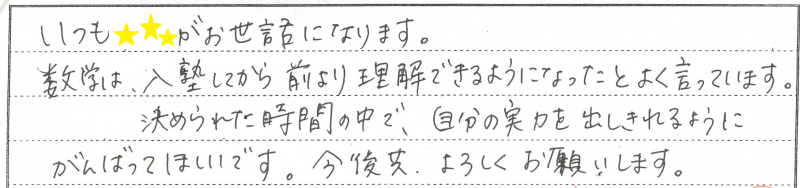 いつも がお世話になります。
数学は、入塾してから前より理解できるようになったとよく言っています。
決められた時間の中で、自分の実力を出しきれるように
がんばってほしいです。今後共、よろしくお願いします。